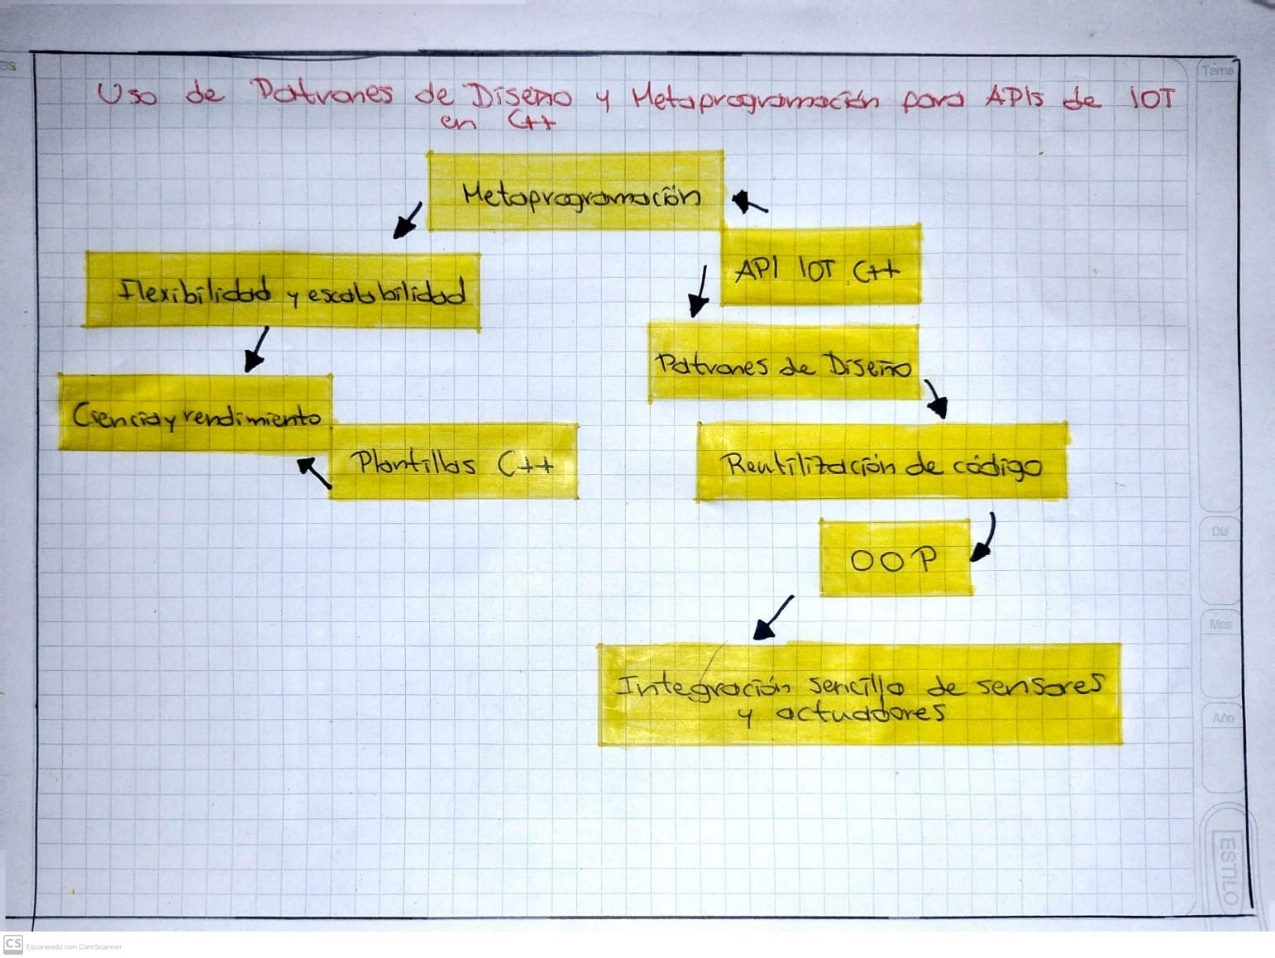 as
Tema
Uso de Patrones de Diseño y Metaprogramación para APIs de IOT
en C++
Metaprogramación
API IOT C++
Flexibilidad y escalabilidad
Patrones de Diseño
Ciencia y rendimiento
Plantillas C++
Reutilización de código
OOP
Día
Mes
Integración sencilla de sensores
y actuadores
Año
ESTILO
CS Escaneado con CamScanner